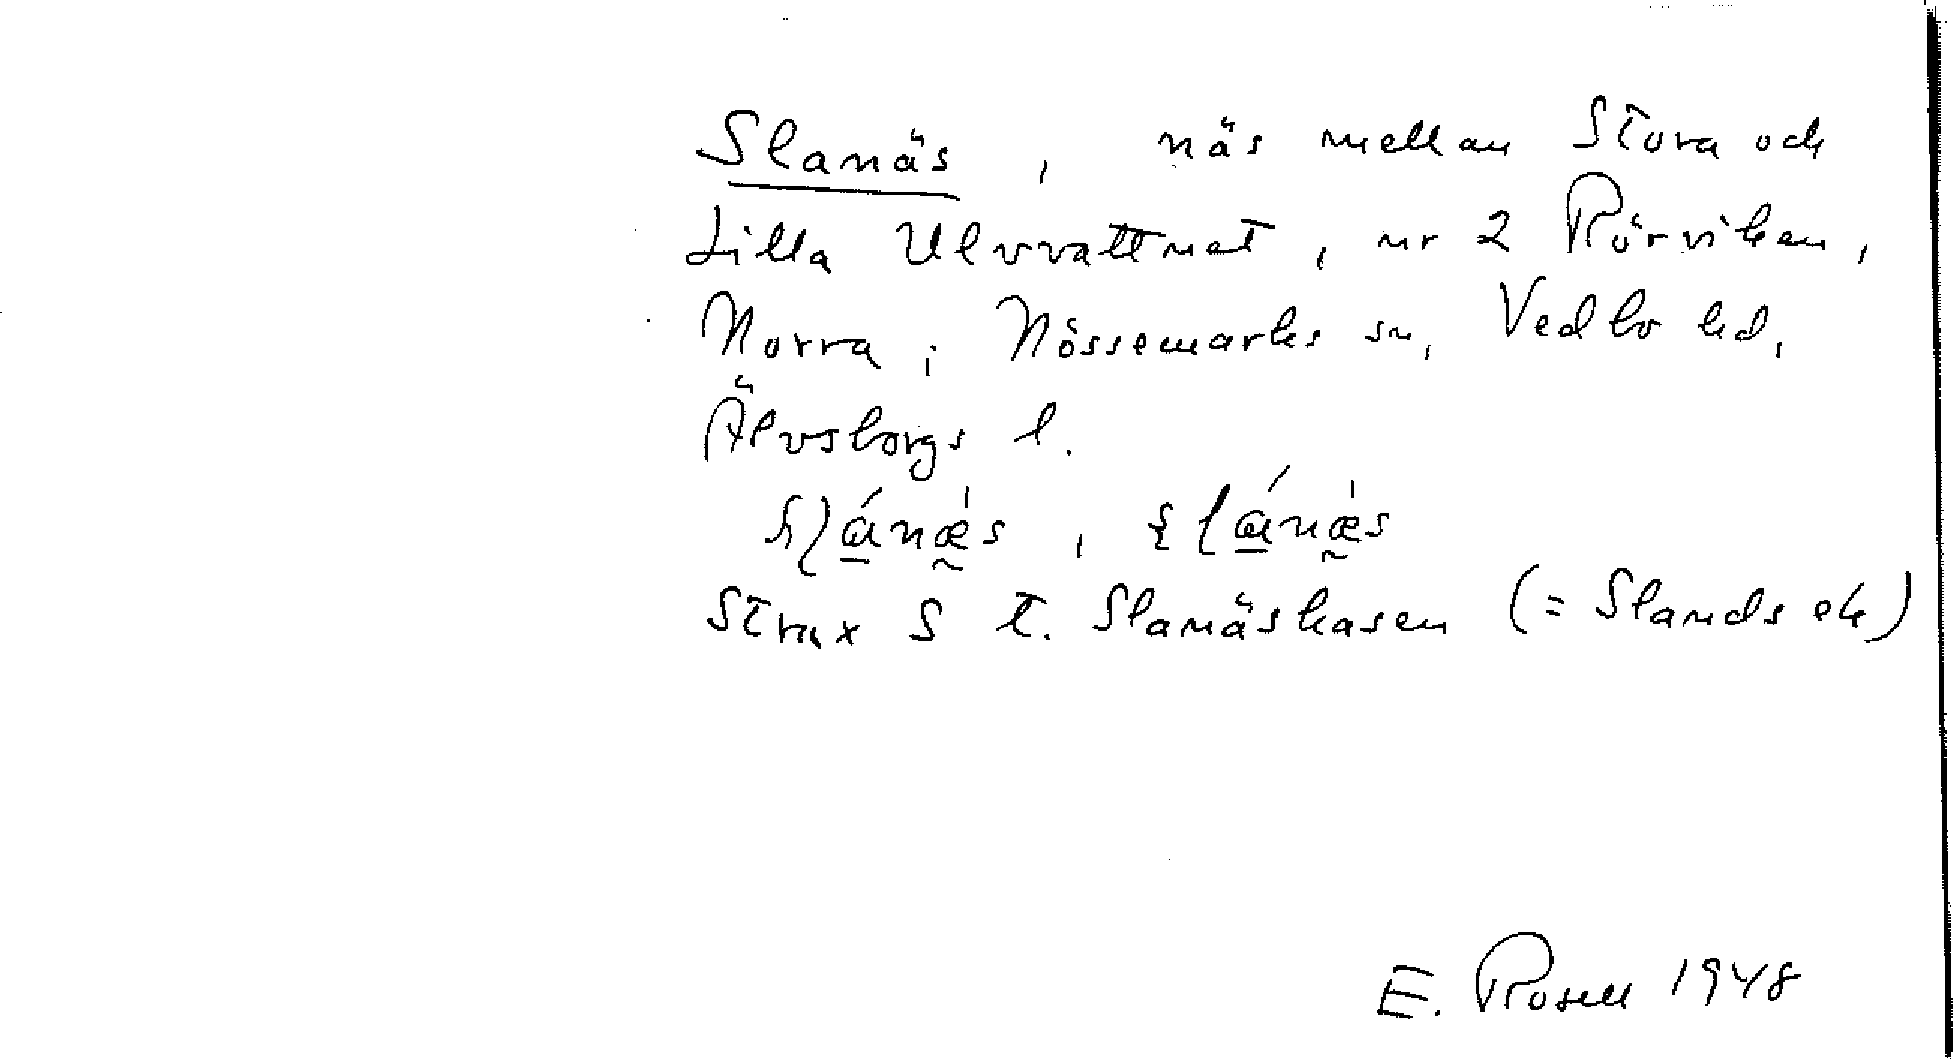 Slanäs, näs mellan Stora och
Lilla Ulvvattnet, nr 2 Rörviken,
Norra i Nössemarks sn, Vedbo hd,
Älvsborgs l.
Strax S t. Slanäskasen (= Slands ek)
E. Rosell 1948